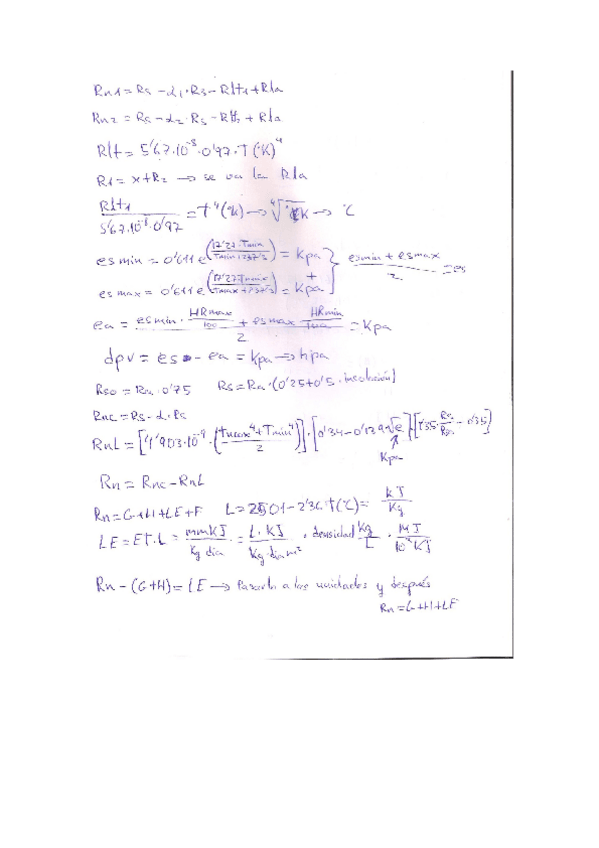 Rn1 = Rs - α1·Rs - Rlt1 + Rla
Rn2 = Rs - α2·Rs - Rlt2 + Rla
Rlt = 5'67·10^-8·0'97·T(ºK)^4
R1 = x + R2 → se va la Rla
Rlt1 / 5'67·10^-8·0'97 = T^4(ºk) → ⁴√ K → ºC
es min = 0'611 e^(17'27·Tmin / Tmin+237'3) = Kpa
+ } esmin + esmax / 2 = es
es max = 0'611 e^(17'27·Tmax / Tmax+237'3) = Kpa
ea = esmin · HRmax/100 + esmax HRmin/100 / 2 = Kpa
dpv = es - ea = Kpa → hpa
Rso = Ra·0'75 Rs = Ra·(0'25+0'5·insolación)
Rnc = Rs - α·Rs
RnL = [4'903·10^-9·(Tmax^4 + Tmin^4 / 2)]·[0'34 - 0'139√e]·[1'35·Rs/Rso - 0'35]
Kpa
Rn = Rnc - RnL
Rn = G+H+LE+F L = 2501 - 2'36·T(ºC) = kJ/Kg
LE = ET·L = mmKJ / Kg dia = L·KJ / Kg·dia m² · densidad Kg/L · MJ / 10^3 KJ
Rn - (G+H) = LE → Pasarlo a las unidades y después
Rn = G+H+LE